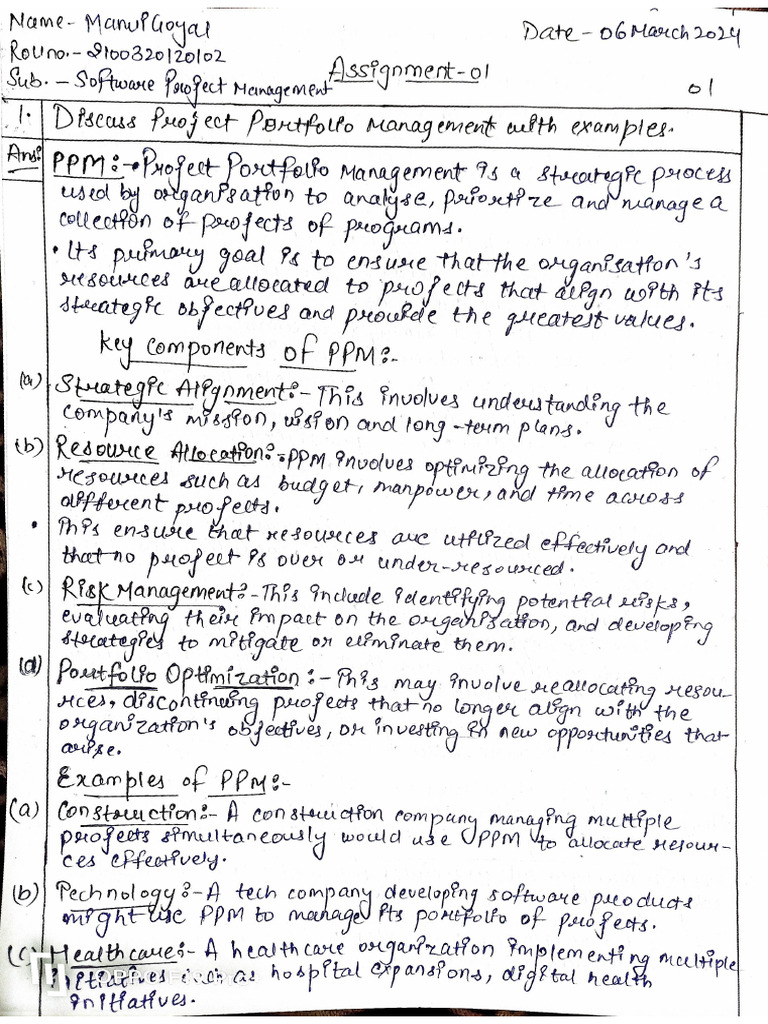 Name- Manvi Goyal
Date - 06 March 2024
Roll no.- 2100320120102
Assignment-01
Sub. - Software Project Management
01
1. Discuss Project Portfolio Management with examples.
Ans: PPM:- • Project Portfolio Management is a strategic process
used by organisation to analyse, prioritize and manage a
collection of projects of programs.
• Its primary goal is to ensure that the organisation's
resources are allocated to projects that align with its
strategic objectives and provide the greatest values.
Key components of PPM:-
(a) Strategic Alignment:- This involves understanding the
company's mission, vision and long-term plans.
(b) Resource Allocation:- PPM involves optimizing the allocation of
resources such as budget, manpower, and time across
different projects.
• This ensure that resources are utilized effectively and
that no project is over or under-resourced.
(c) Risk Management:- This include identifying potential risks,
evaluating their impact on the organisation, and developing
strategies to mitigate or eliminate them.
(d) Portfolio Optimization :- This may involve reallocating resou-
rces, discontinuing projects that no longer align with the
organization's objectives, or investing in new opportunities that
arise.
Examples of PPM:-
(a) Construction:- A construction company managing multiple
projects simultaneously would use PPM to allocate resour-
ces effectively.
(b) Technology:- A tech company developing software products
might use PPM to manage its portfolio of projects.
(c) Healthcare:- A healthcare organization implementing multiple
initiatives such as hospital expansions, digital health
initiatives.